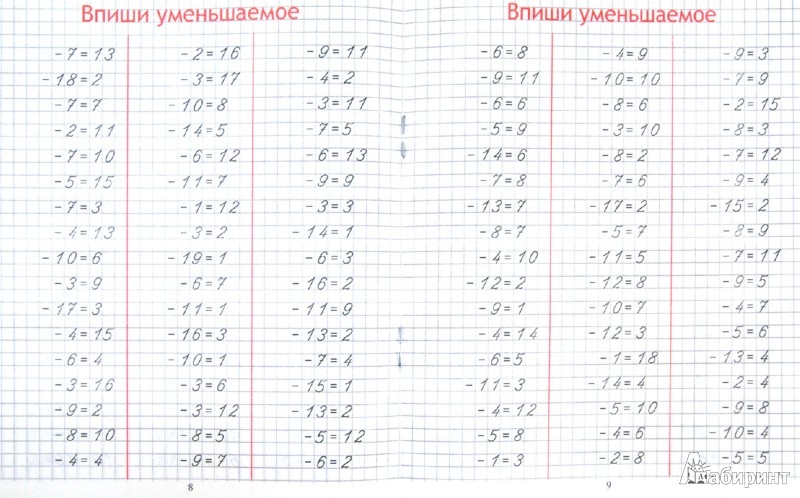 Впиши уменьшаемое
-7=13 -2=16 -9=11
-18=2 -3=17 -4=2
-7=7 -10=8 -3=11
-2=11 -14=5 -7=5
-7=10 -6=12 -6=13
-5=15 -11=7 -9=9
-7=3 -1=12 -3=3
-4=13 -3=2 -14=1
-10=6 -19=1 -6=3
-3=9 -6=7 -16=2
-17=3 -11=1 -11=9
-4=15 -16=3 -13=2
-6=4 -10=1 -7=4
-3=16 -3=6 -15=1
-9=2 -3=12 -13=2
-8=10 -8=5 -5=12
-4=4 -9=7 -6=2
8
Впиши уменьшаемое
-6=8 -4=9 -9=3
-9=11 -10=10 -7=9
-6=6 -8=6 -2=15
-5=9 -3=10 -8=3
-14=6 -8=2 -7=12
-7=8 -7=6 -9=4
-13=7 -17=2 -15=2
-8=7 -5=7 -8=9
-4=10 -11=5 -7=11
-12=2 -12=8 -9=5
-9=1 -10=7 -4=7
-4=14 -12=3 -5=6
-6=5 -1=18 -13=4
-11=3 -14=4 -2=4
-4=12 -5=10 -9=8
-5=8 -4=6 -10=4
-1=3 -2=8 -5=5
9
Лабиринт